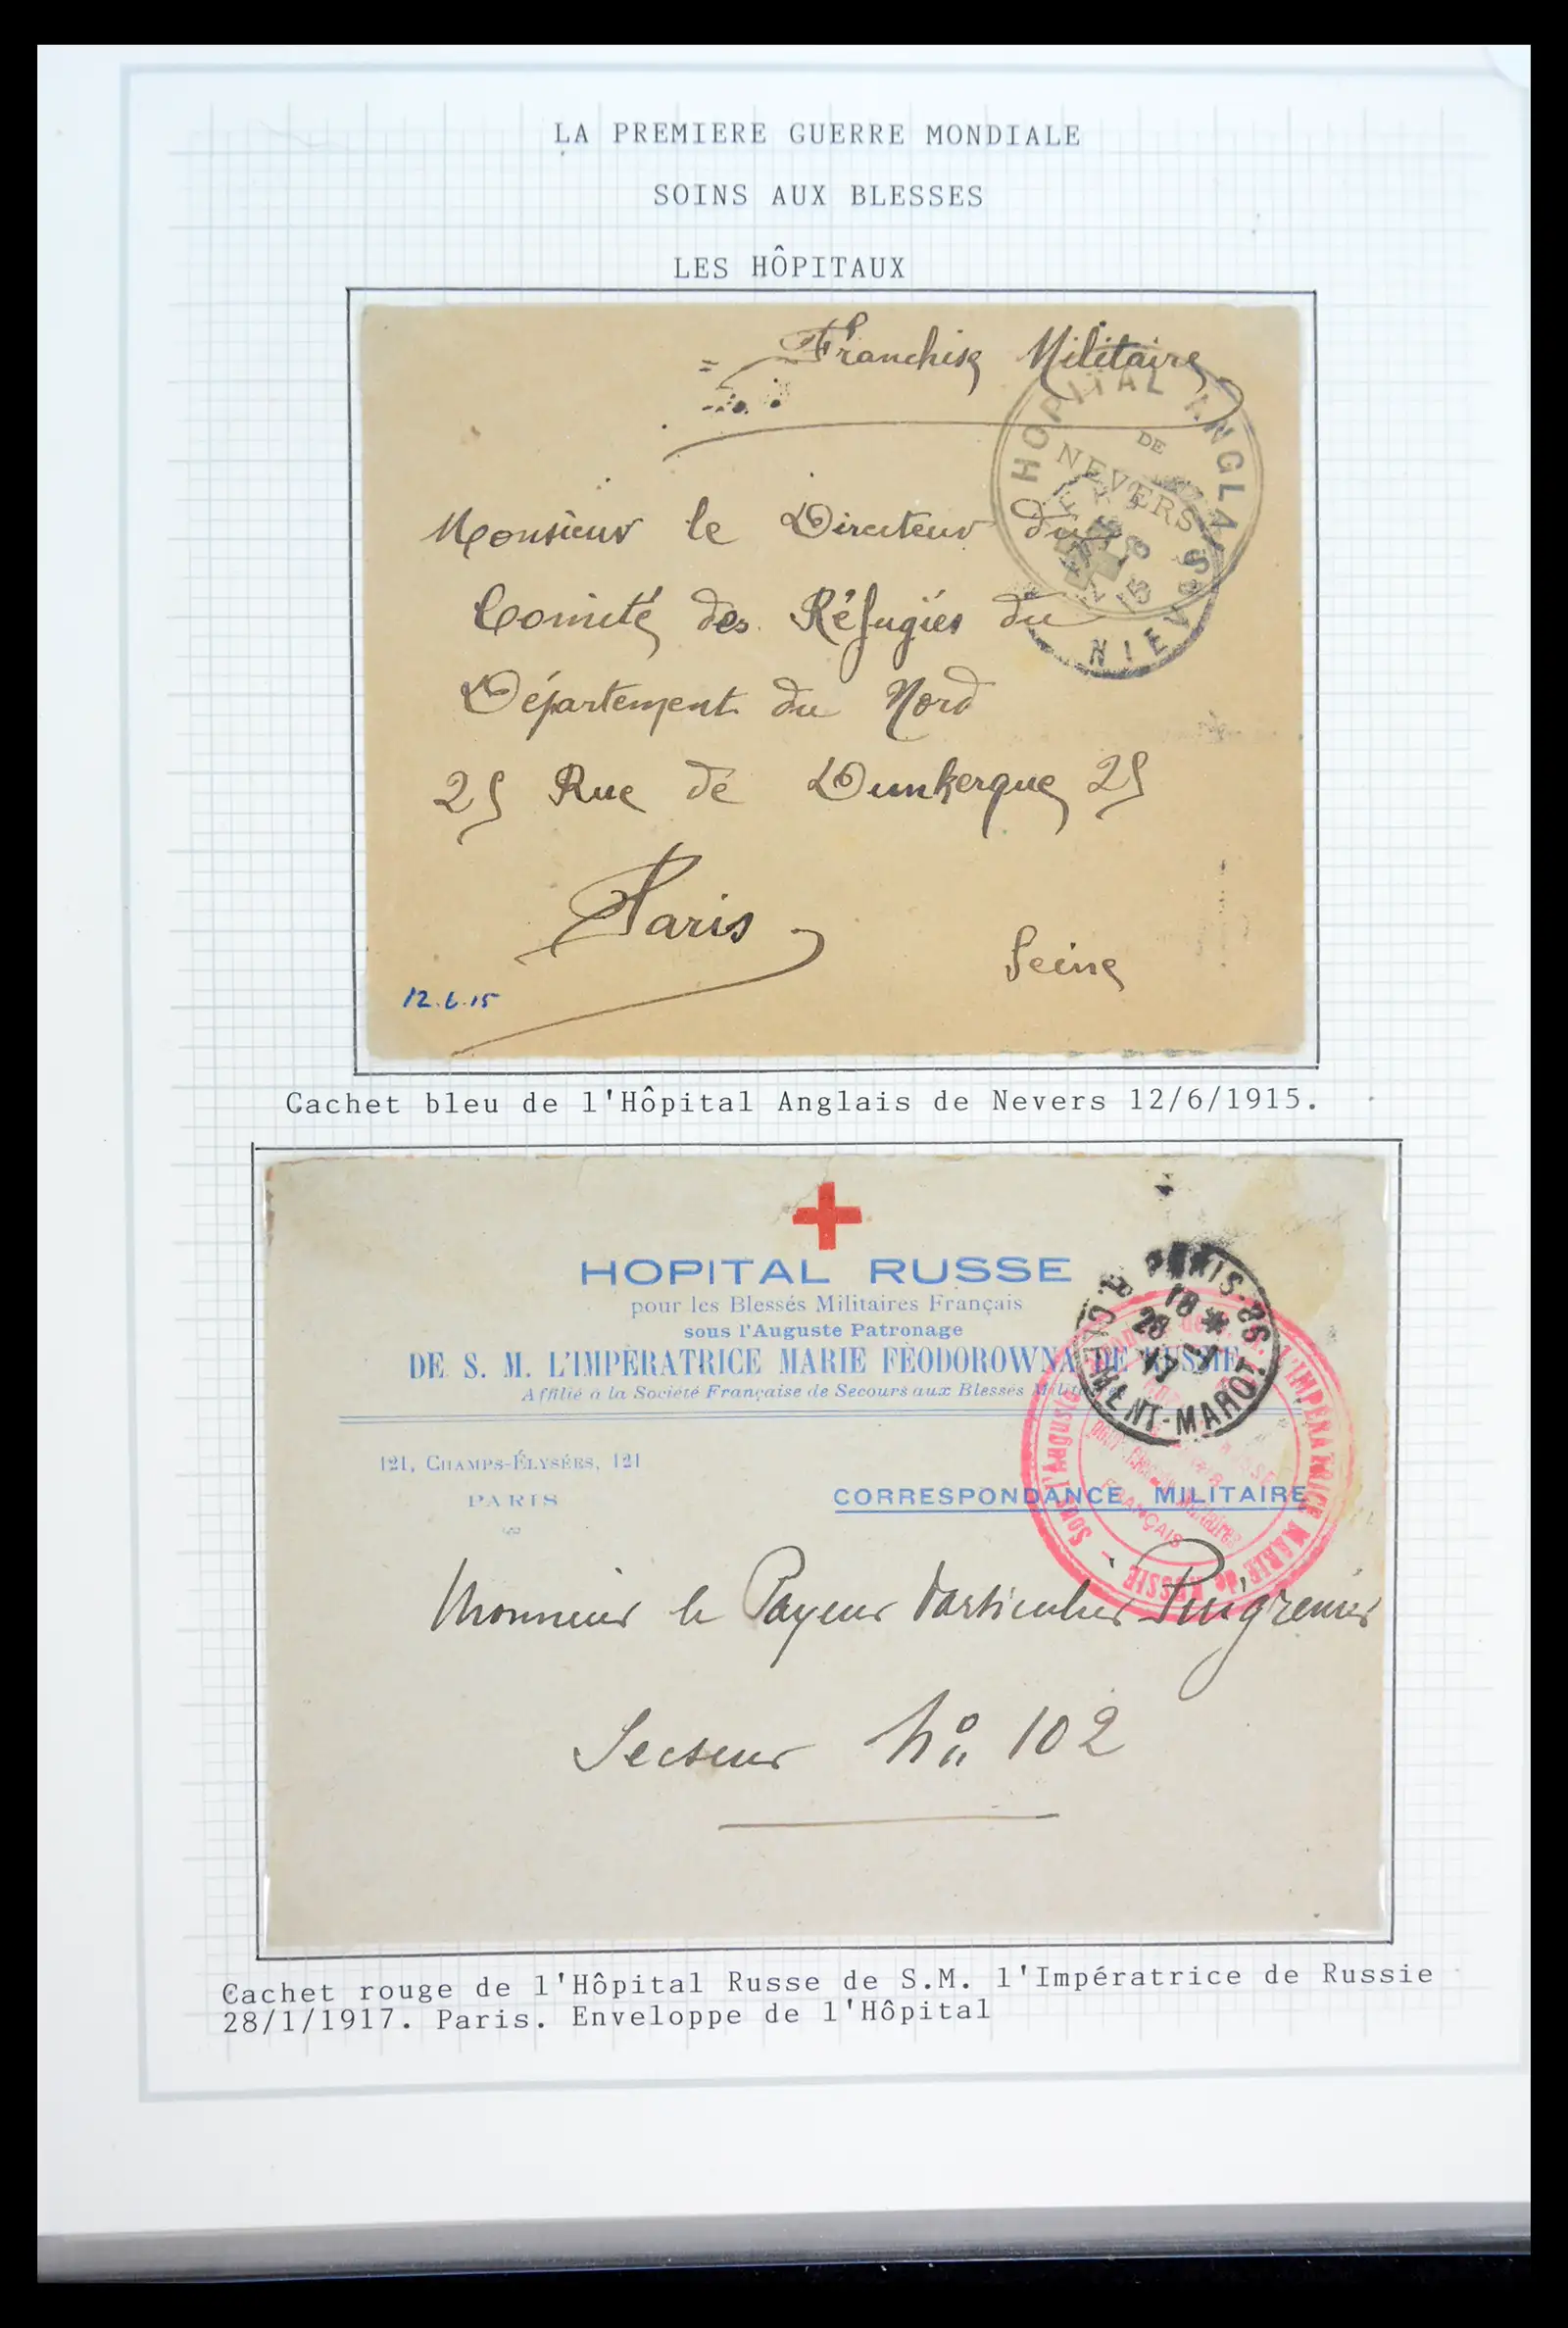 LA PREMIERE GUERRE MONDIALE
SOINS AUX BLESSES
LES HÔPITAUX
Franchise Militaire
HOPITAL ANGLAIS
DE
NEVERS
12 - 6
15
NIEVRE
Monsieur le Directeur du
Comité des Réfugiés du
Département du Nord
25 Rue de Dunkerque 25
Paris
Seine
12.6.15
Cachet bleu de l'Hôpital Anglais de Nevers 12/6/1915.
HOPITAL RUSSE
pour les Blessés Militaires Français
sous l'Auguste Patronage
DE S. M. L'IMPÉRATRICE MARIE FÉODOROWNA DE RUSSIE
Affilié à la Société Française de Secours aux Blessés Militaires
121, CHAMPS-ÉLYSÉES, 121
PARIS
CORRESPONDANCE MILITAIRE
PARIS-25
18 *
28 - 1
17
R. CLEMENT-MAROT
Sous l'Auguste
L'IMPÉRATRICE MARIE de RUSSIE
Militaires
FRANÇAIS
Monsieur le Payeur Particulier Puigrenier
Secteur No 102
Cachet rouge de l'Hôpital Russe de S.M. l'Impératrice de Russie
28/1/1917. Paris. Enveloppe de l'Hôpital